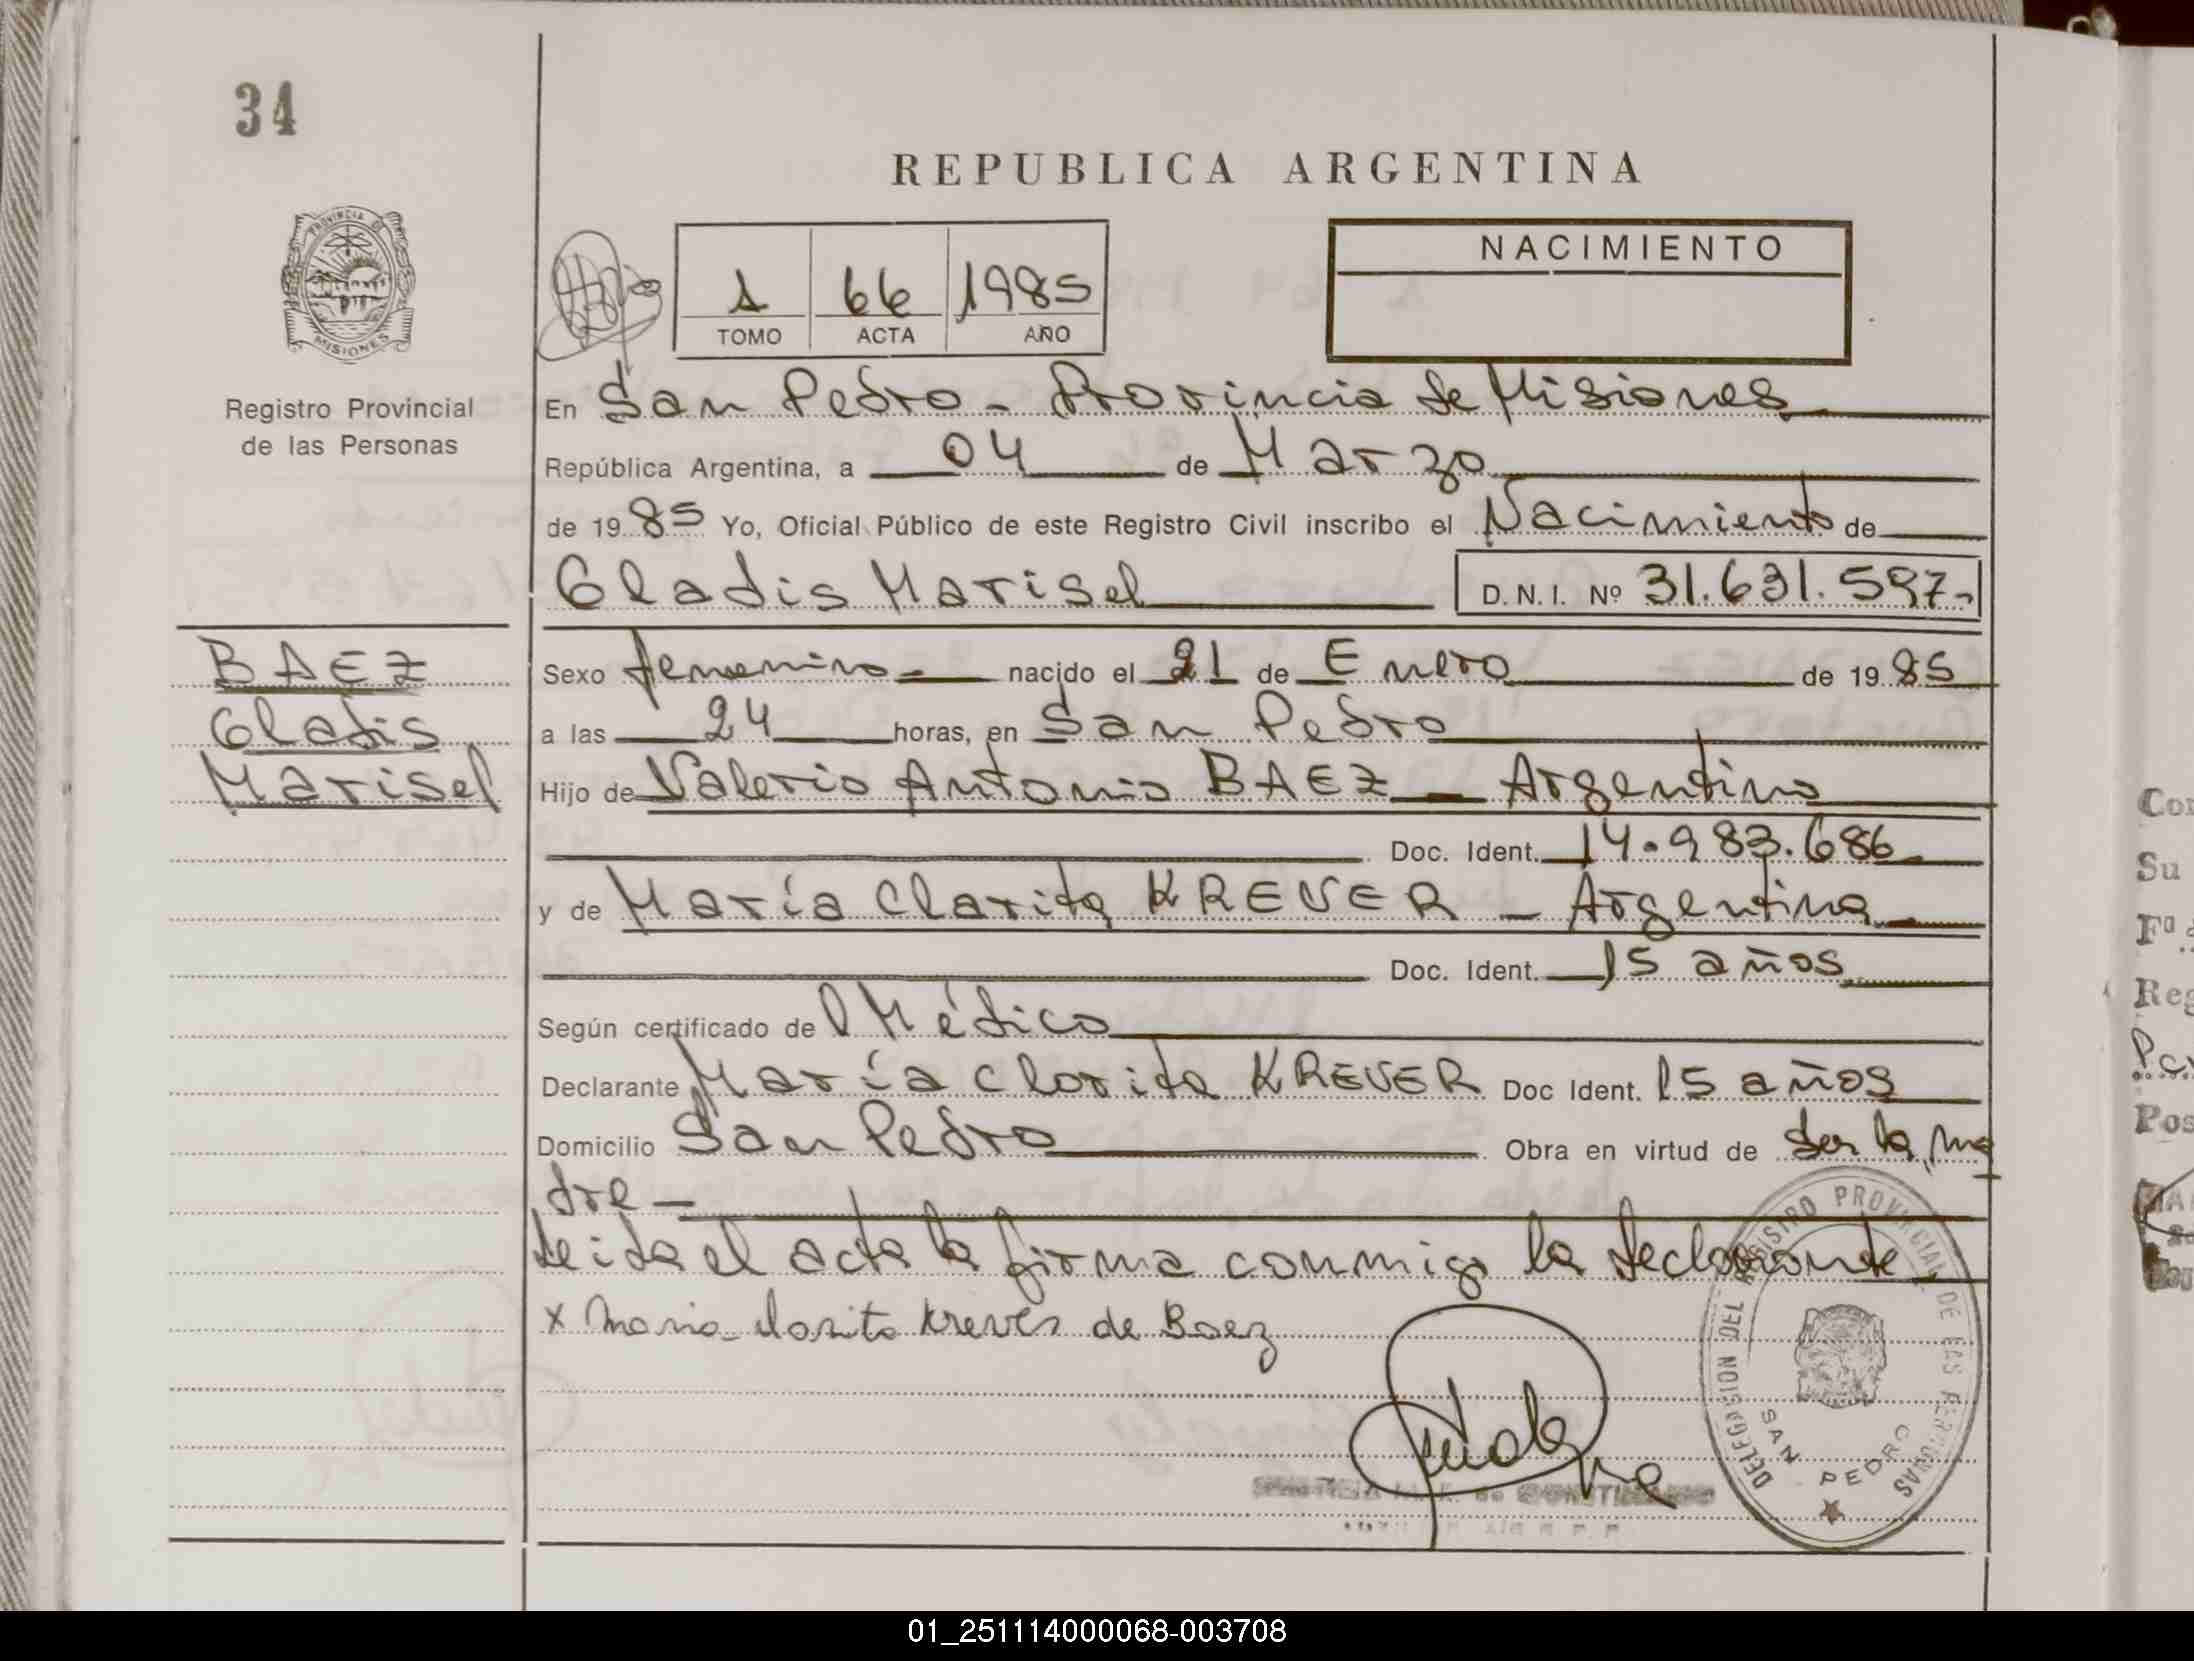 34
REPUBLICA ARGENTINA
PROVINCIA DE
MISIONES
Registro Provincial
de las Personas
1 66 1985
TOMO ACTA AÑO
NACIMIENTO
En San Pedro - Provincia de Misiones
República Argentina, a 04 de Marzo
de 1985 Yo, Oficial Público de este Registro Civil inscribo el Nacimiento de
Gladis Marisel D.N.I. Nº 31.631.597.-
BAEZ
Gladis
Marisel
Sexo femenino - nacido el 21 de Enero de 1985
a las 24 horas, en San Pedro
Hijo de Valerio Antonio BAEZ - Argentino
Doc. Ident. 14.983.686
y de María Clarita KREVER - Argentina
Doc. Ident. 15 años
Según certificado de Médico
Declarante María Clorita KREVER Doc Ident. 15 años
Domicilio San Pedro Obra en virtud de ser la ma
dre -
Leida el acta la firma conmigo la declarante
x Maria Clorita Krever de Baez
DELEGACION DEL REGISTRO PROVINCIAL DE LAS PERSONAS
SAN PEDRO
Su
Reg
Pos
01_251114000068-003708